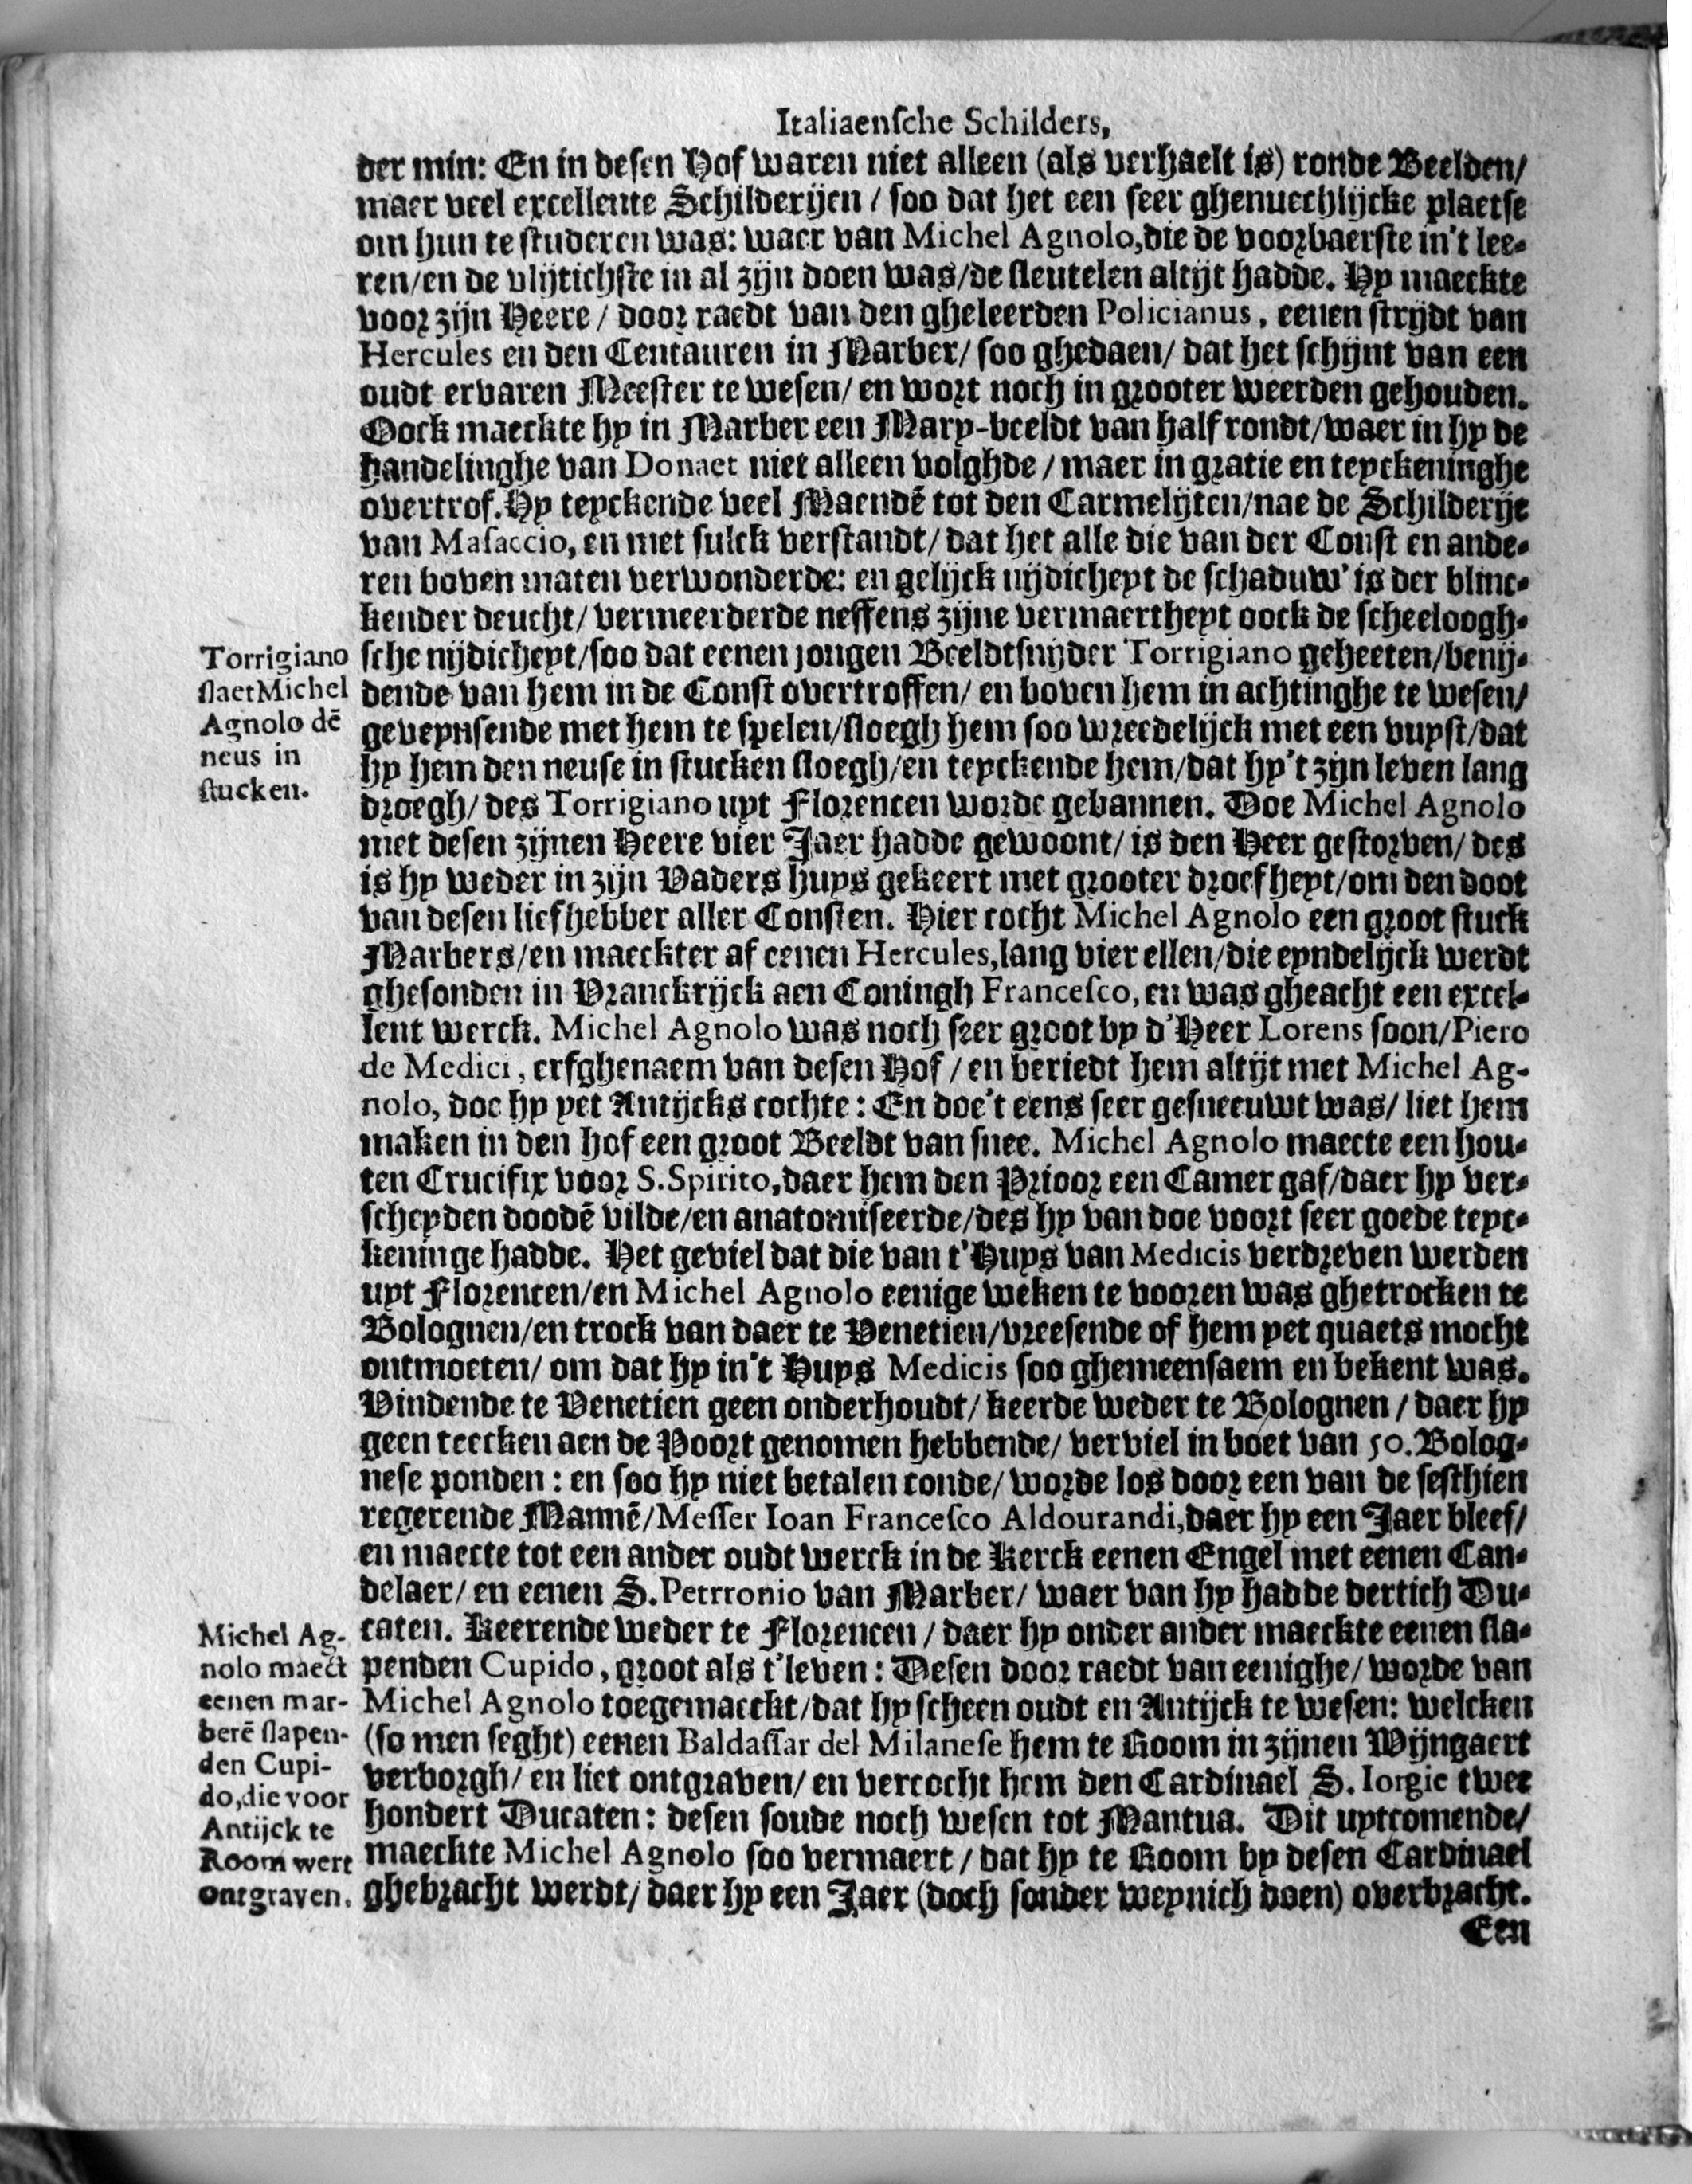 Italiaenſche Schilders,
der min: En in deſen Hof waren niet alleen (als verhaelt is) ronde Beelden/
maer veel excellente Schilderijen / ſoo dat het een ſeer ghenuechlijcke plaetſe
om hun te ſtuderen was: waer van Michel Agnolo, die de voorbaerſte in't lee-
ren/en de vlijtichſte in al zijn doen was/de ſleutelen altijt hadde. Hy maeckte
voor zijn Heere / door raedt van den gheleerden Policianus, eenen ſtrijdt van
Hercules en den Centauren in Marber/ ſoo ghedaen/ dat het ſchijnt van een
oudt ervaren Meeſter te weſen/ en wort noch in grooter weerden gehouden.
Oock maeckte hy in Marber een Mary-beeldt van half rondt/waer in hy de
handelinghe van Donaet niet alleen volghde / maer in gratie en teyckeninghe
overtrof. Hy teyckende veel Maendē tot den Carmelijten/nae de Schilderije
van Maſaccio, en met ſulck verſtandt/ dat het alle die van der Conſt en ande-
ren boven maten verwonderde: en gelijck nijdicheyt de ſchaduw' is der blinc-
kender deucht/ vermeerderde neffens zijne vermaertheyt oock de ſcheeloogh-
ſche nijdicheyt/ſoo dat eenen jongen Beeldtſnijder Torrigiano geheeten/benij-
dende van hem in de Conſt overtroffen/ en boven hem in achtinghe te weſen/
geveynſende met hem te ſpelen/ſloegh hem ſoo wreedelijck met een vuyſt/dat
hy hem den neuſe in ſtucken ſloegh/en teyckende hem/dat hy't zijn leven lang
droegh/ des Torrigiano uyt Florencen worde gebannen. Doe Michel Agnolo
met deſen zijnen Heere vier Jaer hadde gewoont/ is den Heer geſtorven/ des
is hy weder in zijn Vaders huys gekeert met grooter droefheyt/om den doot
van deſen liefhebber aller Conſten. Hier cocht Michel Agnolo een groot ſtuck
Marbers/en maeckter af eenen Hercules, lang vier ellen/die eyndelijck werdt
gheſonden in Vranckrijck aen Coningh Franceſco, en was gheacht een excel-
lent werck. Michel Agnolo was noch ſeer groot by d'Heer Lorens ſoon/Piero
de Medici, erfghenaem van deſen Hof / en beriedt hem altijt met Michel Ag-
nolo, doe hy yet Antijcks cochte: En doe't eens ſeer geſneeuwt was/ liet hem
maken in den hof een groot Beeldt van ſnee. Michel Agnolo maecte een hou-
ten Crucifix voor S. Spirito, daer hem den Prioor een Camer gaf/daer hy ver-
ſcheyden doodē vilde/en anatomiſeerde/des hy van doe voort ſeer goede teyc-
keninge hadde. Het geviel dat die van t'Huys van Medicis verdreven werden
uyt Florencen/en Michel Agnolo eenige weken te vooren was ghetrocken te
Bolognen/en trock van daer te Venetien/vreeſende of hem yet quaets mocht
ontmoeten/ om dat hy in't Huys Medicis ſoo ghemeenſaem en bekent was.
Vindende te Venetien geen onderhoudt/ keerde weder te Bolognen / daer hy
geen teecken aen de Poort genomen hebbende/ verviel in boet van 50. Bolog-
neſe ponden : en ſoo hy niet betalen conde/ worde los door een van de ſeſthien
regerende Mannē/Meſſer Ioan Franceſco Aldourandi, daer hy een Jaer bleef/
en maecte tot een ander oudt werck in de Kerck eenen Engel met eenen Can-
delaer/ en eenen S. Petrronio van Marber/ waer van hy hadde dertich Du-
caten. Keerende weder te Florencen / daer hy onder ander maeckte eenen ſla-
penden Cupido, groot als t'leven : Deſen door raedt van eenighe/ worde van
Michel Agnolo toegemaeckt/dat hy ſcheen oudt en Antijck te weſen: welcken
(ſo men ſeght) eenen Baldaſſar del Milaneſe hem te Room in zijnen Wijngaert
verborgh/ en liet ontgraven/ en vercocht hem den Cardinael S. Iorgie twee
hondert Ducaten: deſen ſoude noch weſen tot Mantua. Dit uytcomende/
maeckte Michel Agnolo ſoo vermaert / dat hy te Room by deſen Cardinael
ghebracht werdt/ daer hy een Jaer (doch ſonder weynich doen) overbracht.
Een
Torrigiano
ſlaet Michel
Agnolo dē
neus in
ſtucken.
Michel Ag-
nolo maect
eenen mar-
berē ſlapen-
den Cupi-
do, die voor
Antijck te
Room wert
ontgraven.